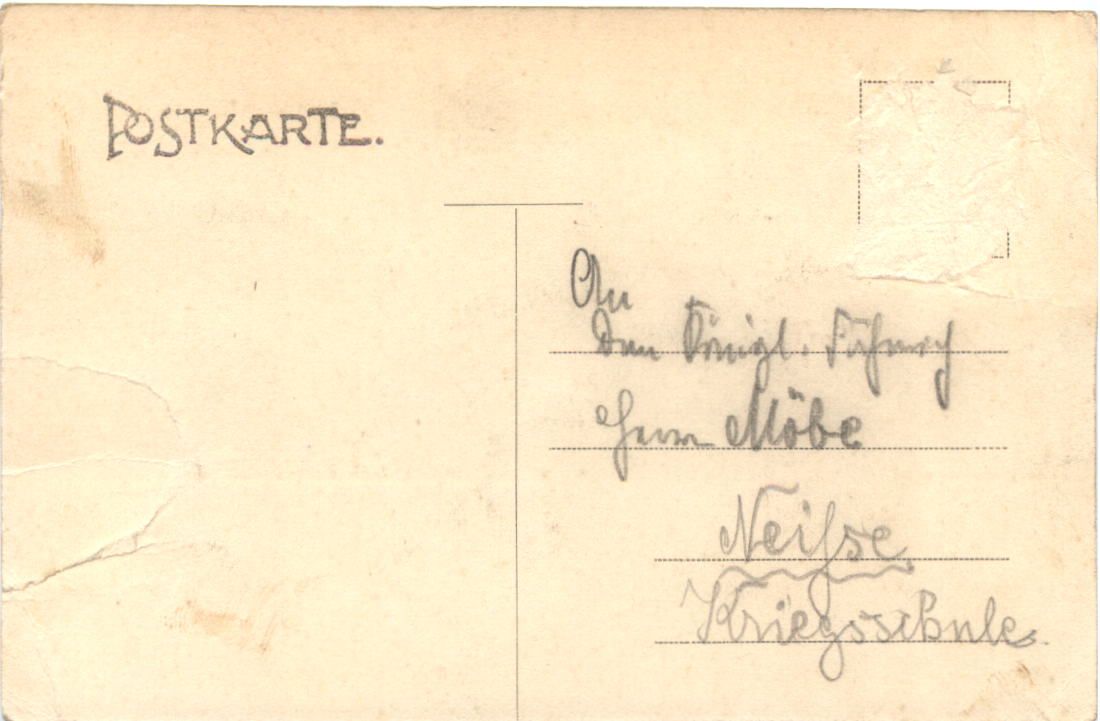 POSTKARTE.
An
den Königl. Fähnrich
Herrn Möbe
Neisse
Kriegsschule.